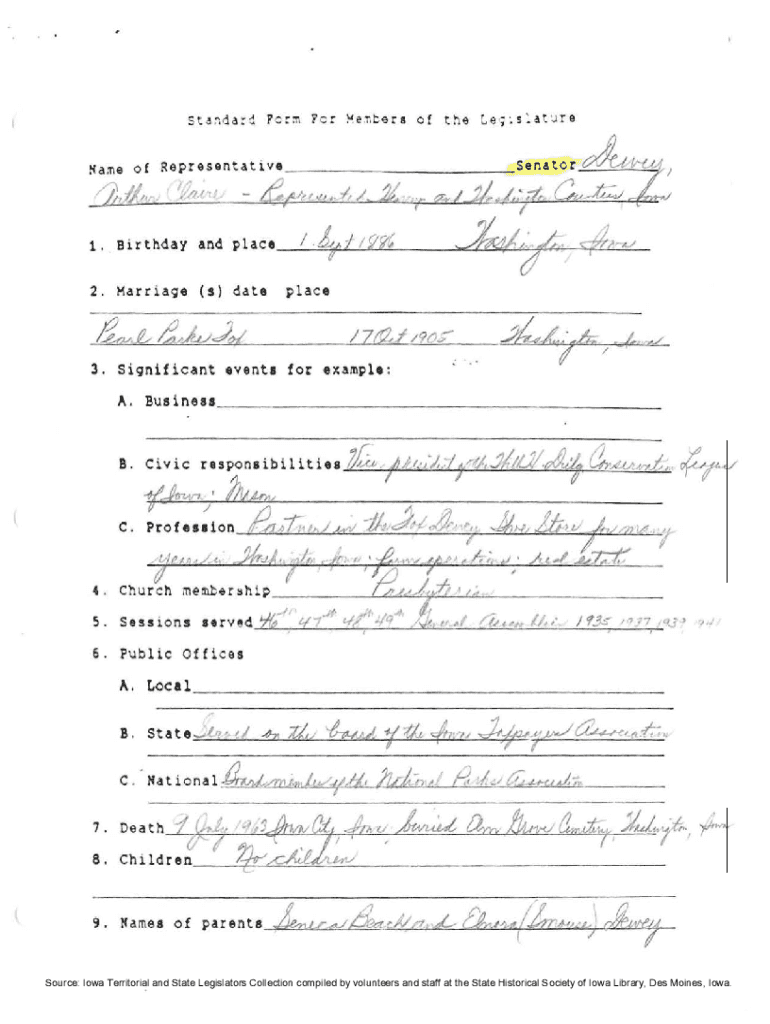 Standard Form For Members of the Legislature
Name of Representative Senator Dewey,
Arthur Claire - Represented Henry and Washington Counties, Iowa
1. Birthday and place 1 Sept 1886 Washington, Iowa
2. Marriage (s) date place
Pearl Parke Fox 17 Oct 1905 Washington, Iowa
3. Significant events for example:
A. Business
B. Civic responsibilities Vice president of the Conservation League
of Iowa; Mason
C. Profession Partner in the Fox Dewey Shoe Store for many
years in Washington, Iowa; farm operations; real estate
4. Church membership Presbyterian
5. Sessions served 46th, 47th, 48th, 49th General Assemblies 1935, 1937, 1939, 1941
6. Public Offices
A. Local
B. State Served on the board of the Iowa Taxpayer Association
C. National Board member of the National Parks Association
7. Death 9 July 1963 Iowa City, Iowa; buried Elm Grove Cemetery, Washington, Iowa
8. Children No children
9. Names of parents Seneca Beach and Elnora (Smouse) Dewey
Source: Iowa Territorial and State Legislators Collection compiled by volunteers and staff at the State Historical Society of Iowa Library, Des Moines, Iowa.